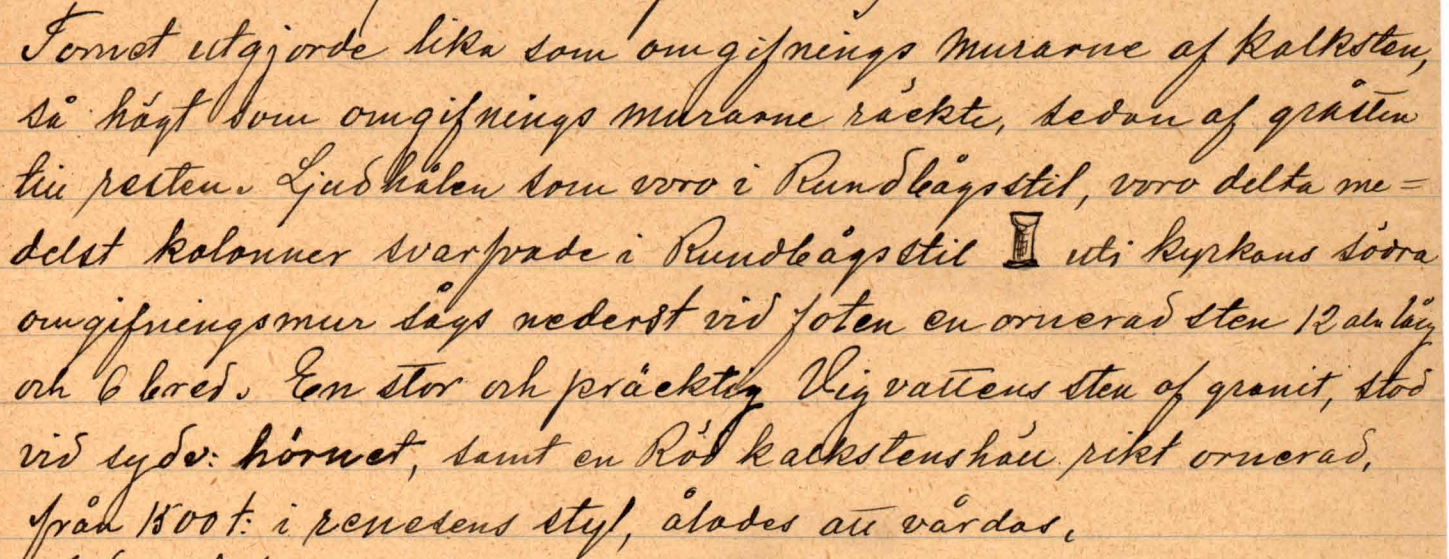 Tornet utgjorde lika som omgifnings murarne af kalksten,
så högt som omgifnings murarne räckte, sedan af gråsten
till resten. Ljudhålen som voro i Rundbågsstil, voro delta me=
delst kolonner svarfvade i Rundbågsstil uti kyrkans södra
omgifningsmur sågs nederst vid foten en ornerad sten 12 aln lång
och 6 bred. En stor och präcktig Vigvattens sten af granit, stod
vid sydv: hörnet, samt en Röd kalkstenshäll rikt ornerad,
från 1500 t: i renesens styl, ålades att vårdas,